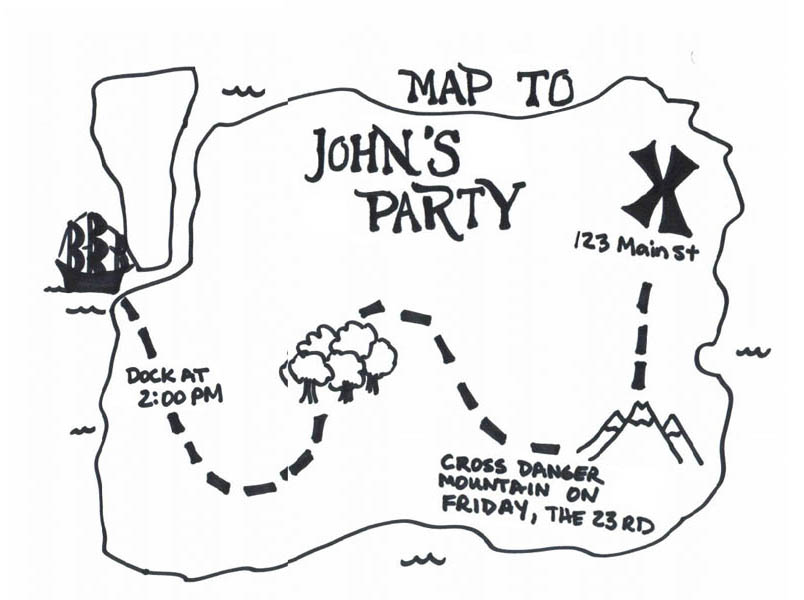 MAP TO
JOHN'S
PARTY
123 Main St
DOCK AT
2:00 PM
CROSS DANGER
MOUNTAIN ON
FRIDAY, THE 23RD